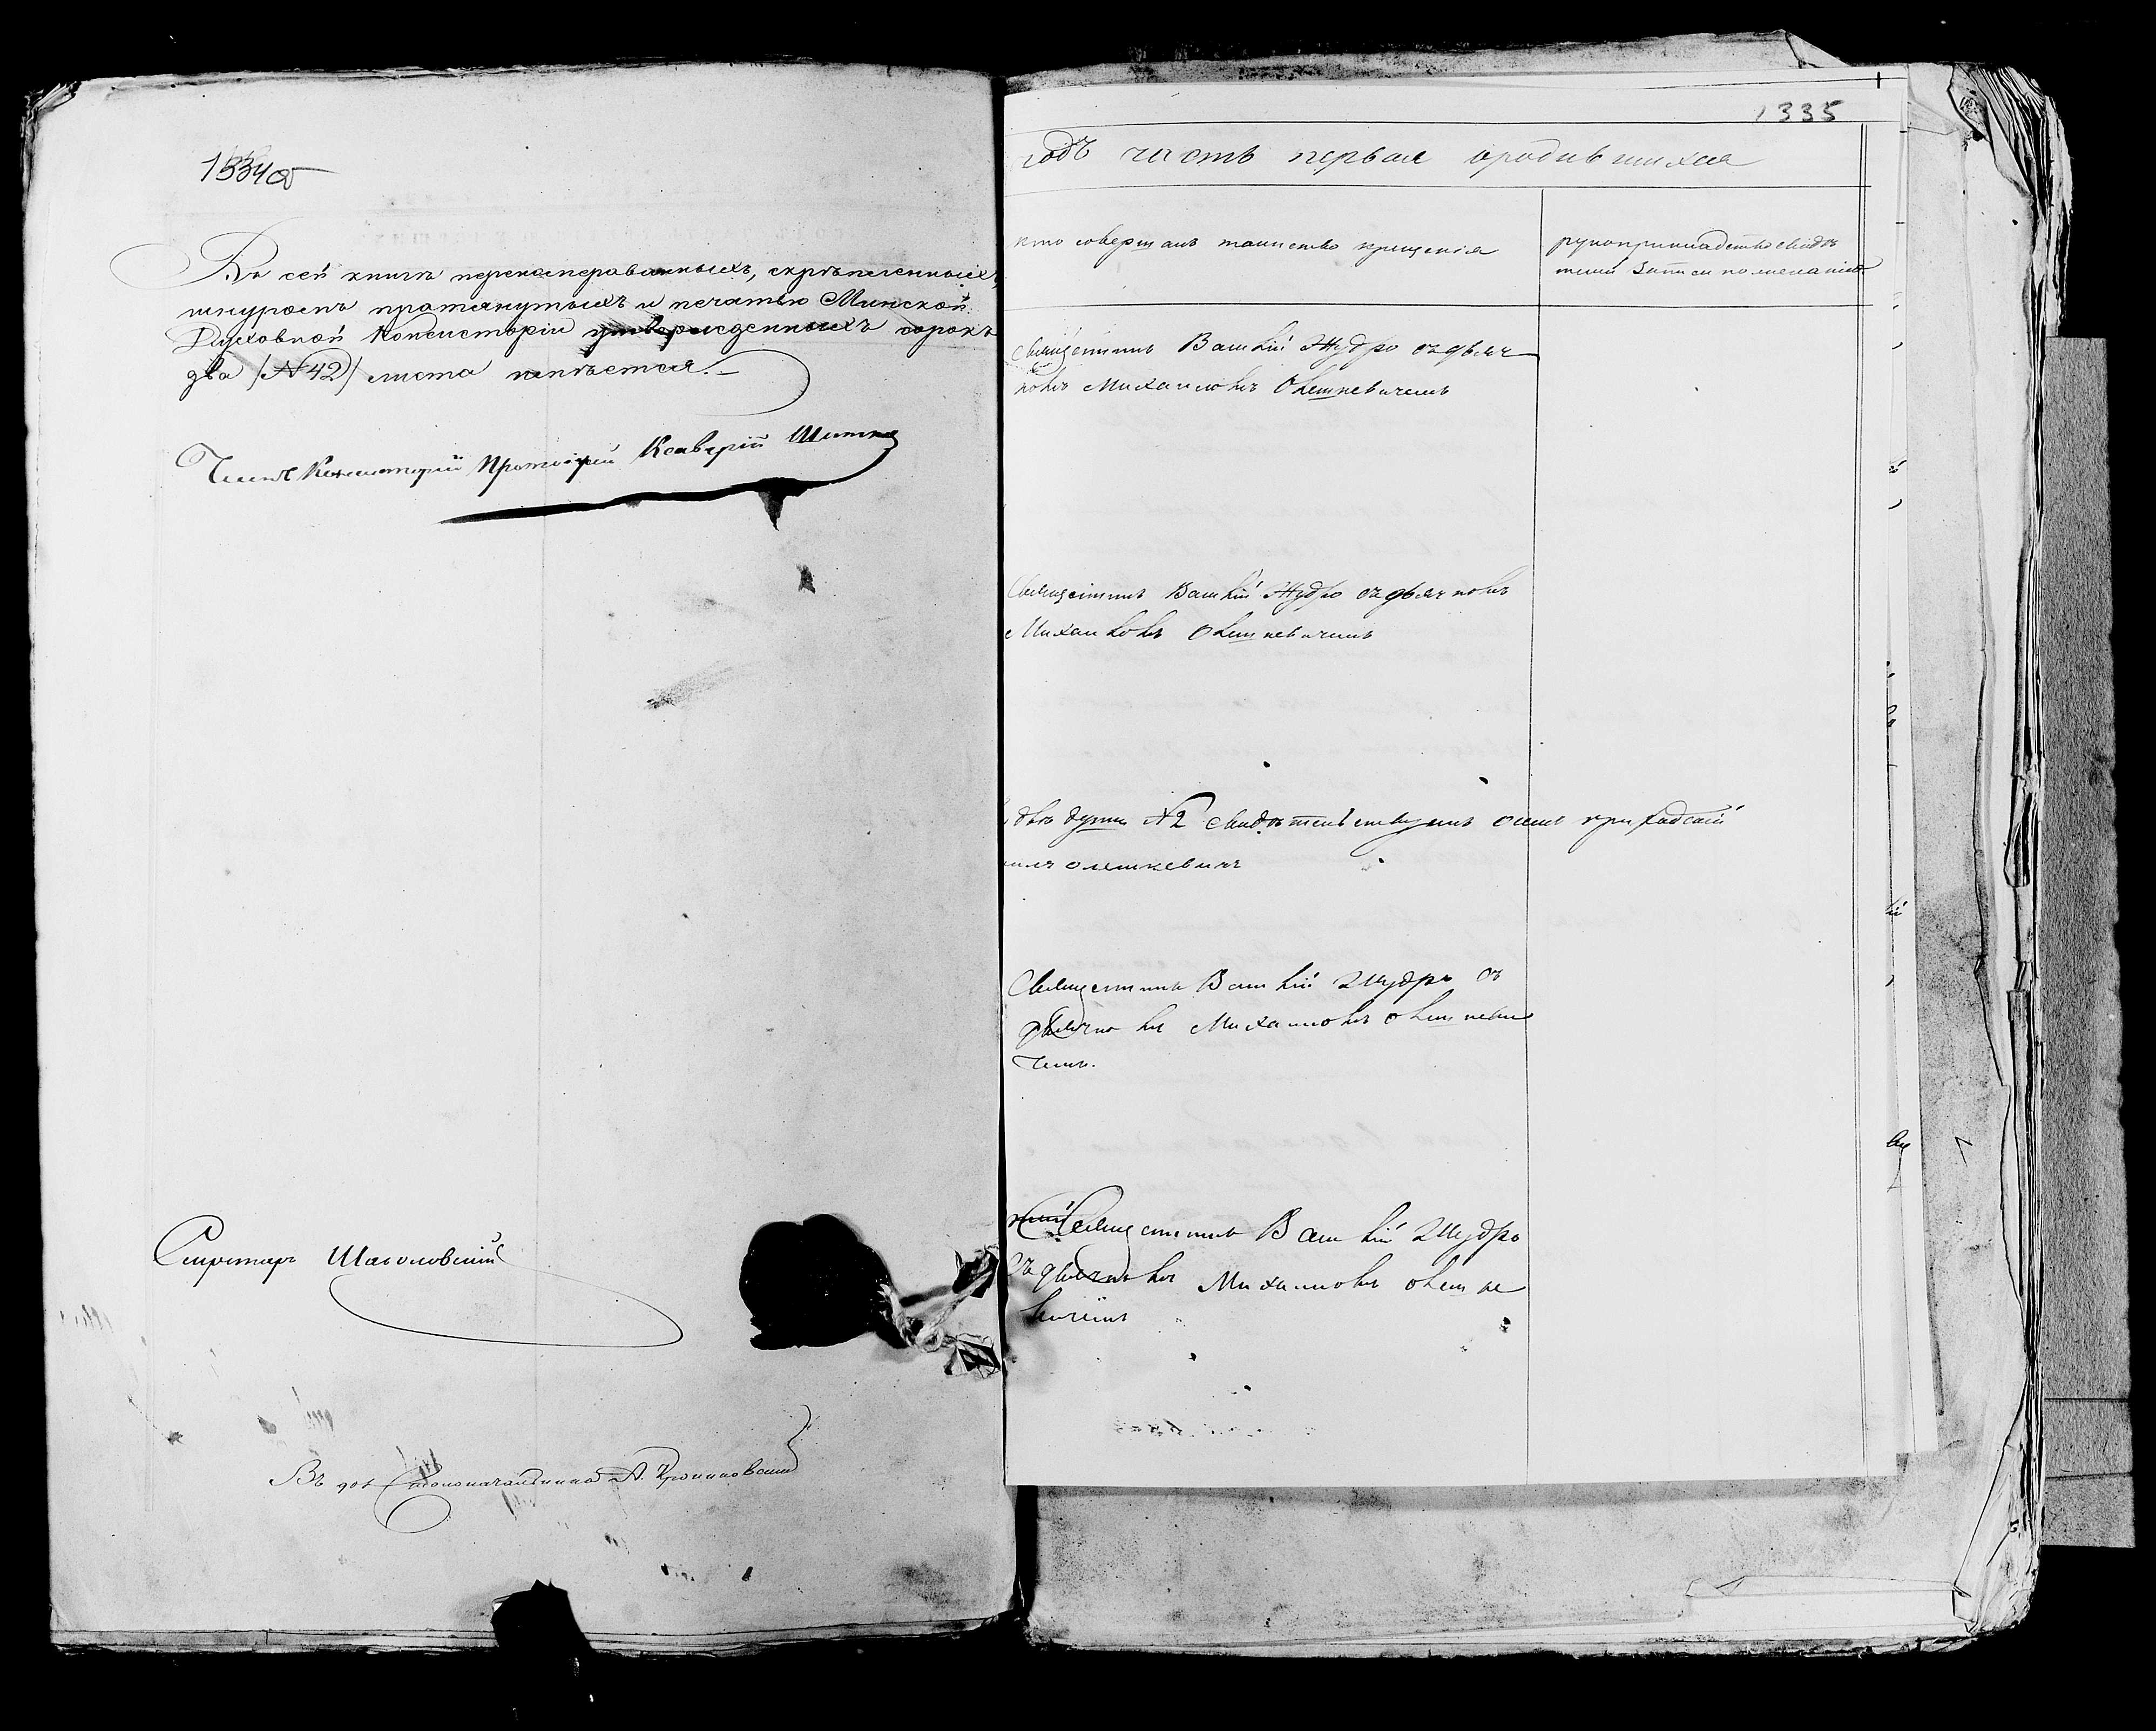 1334об
Въ сей книгѣ переномерованныхъ, скрѣпленныхъ,
шнуромъ протянутыхъ и печатью Минской
Духовной Консисторіи утвержденныхъ сорокъ
два /№ 42/ листа имѣется.
Членъ Консисторіи Протоіерей Ксаверій
Секретарь
Въ дол. Столоначальника А.
1335
годъ часть первая о родившихся
кто совершалъ таинство крещенія
рукоприкладство свидѣ
телей записи по желанію
Священникъ Василій Жудро съ дьяч
комъ Михаиломъ Олешкевичемъ
Священникъ Василій Жудро съ дьячкомъ
Михаиломъ Олешкевичемъ
двѣ души № 2 свидѣтельствуемъ
олешкевичъ
Священникъ Василій Жудро съ
дьячкомъ Михаиломъ Олешкеви
чемъ.
Священникъ Василій Жудро
съ дьячкомъ Михаиломъ Олешке
вичемъ